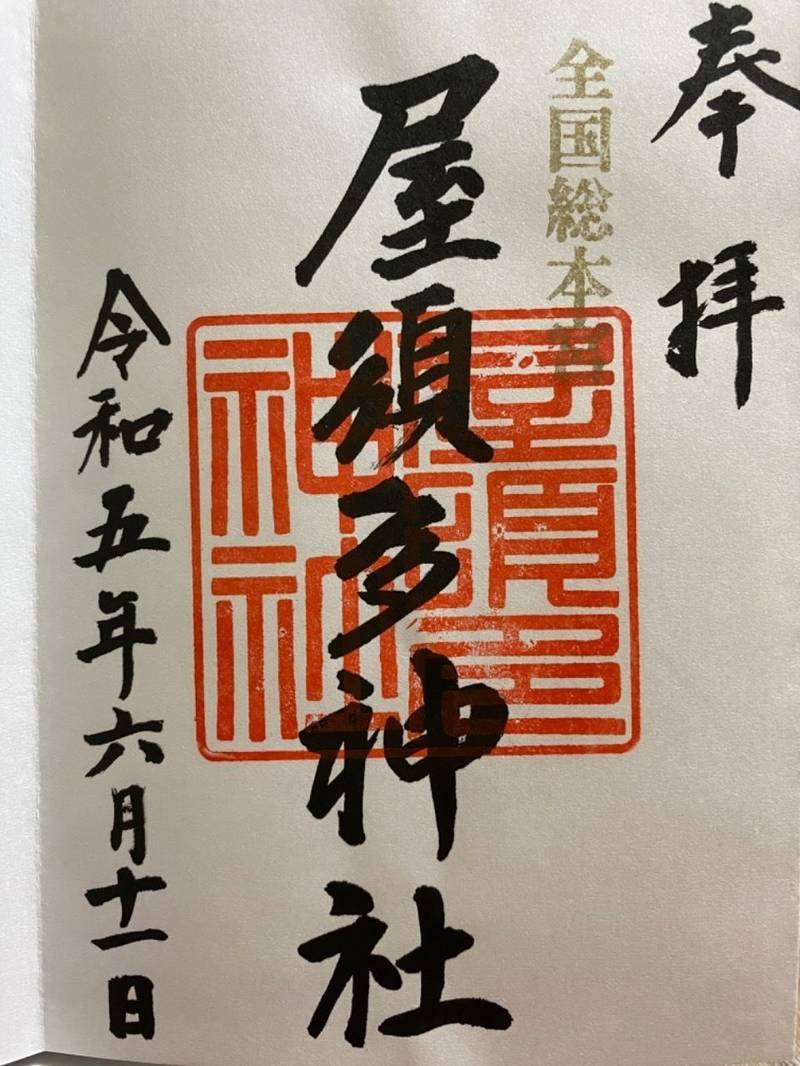 奉拝
全国総本宮
屋須多神社
令和五年六月十一日